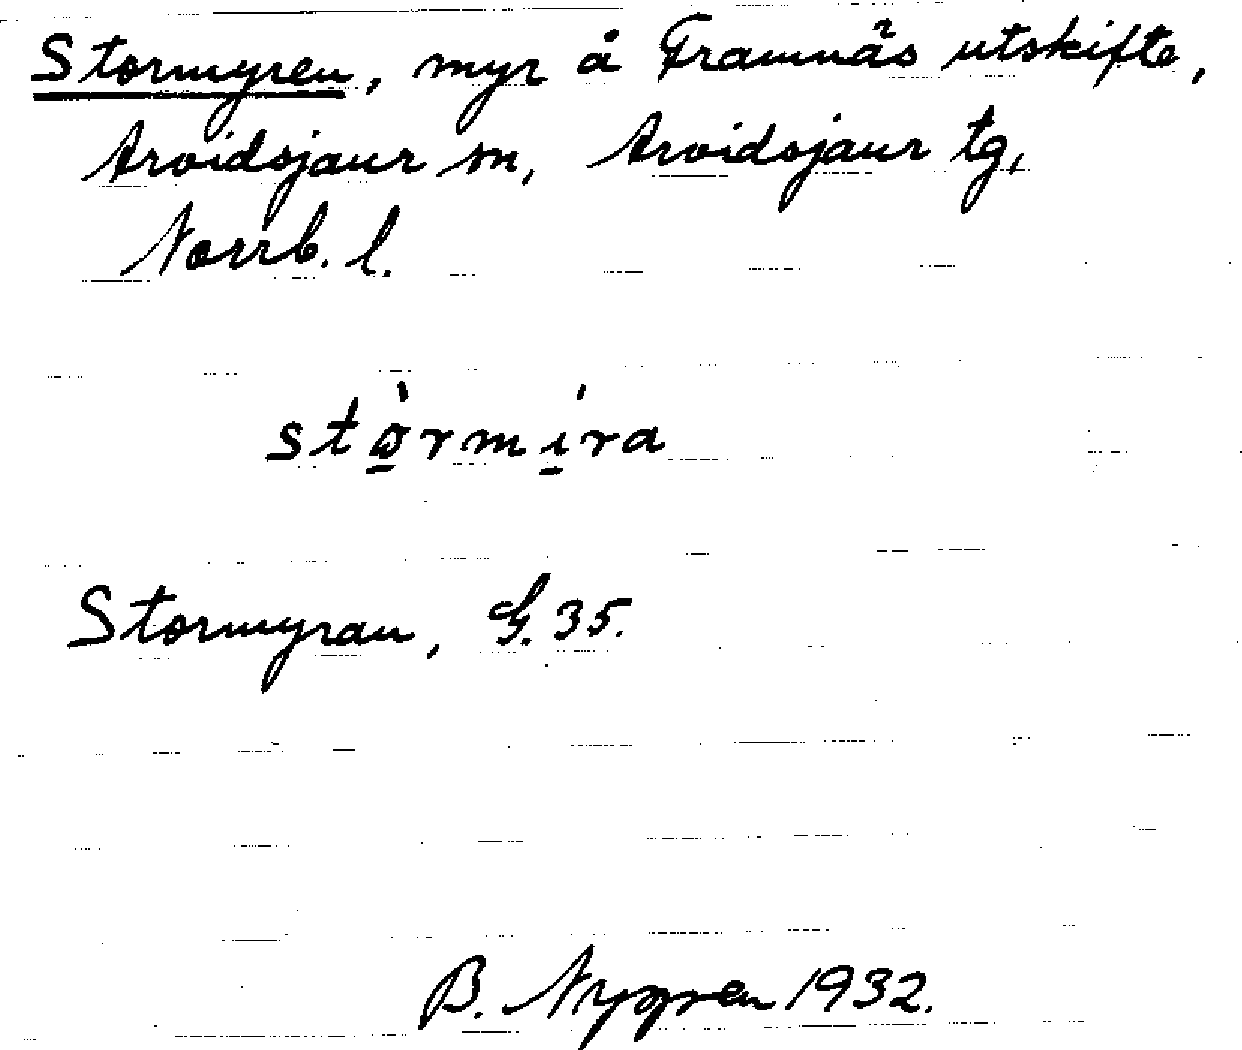 Stormyren, myr å Framnäs utskifte,
Arvidsjaur sn, Arvidsjaur tg,
Norrb. l.
stǫ̀rmí̱ra
Stormyran, G. 35.
B. Nygren 1932.